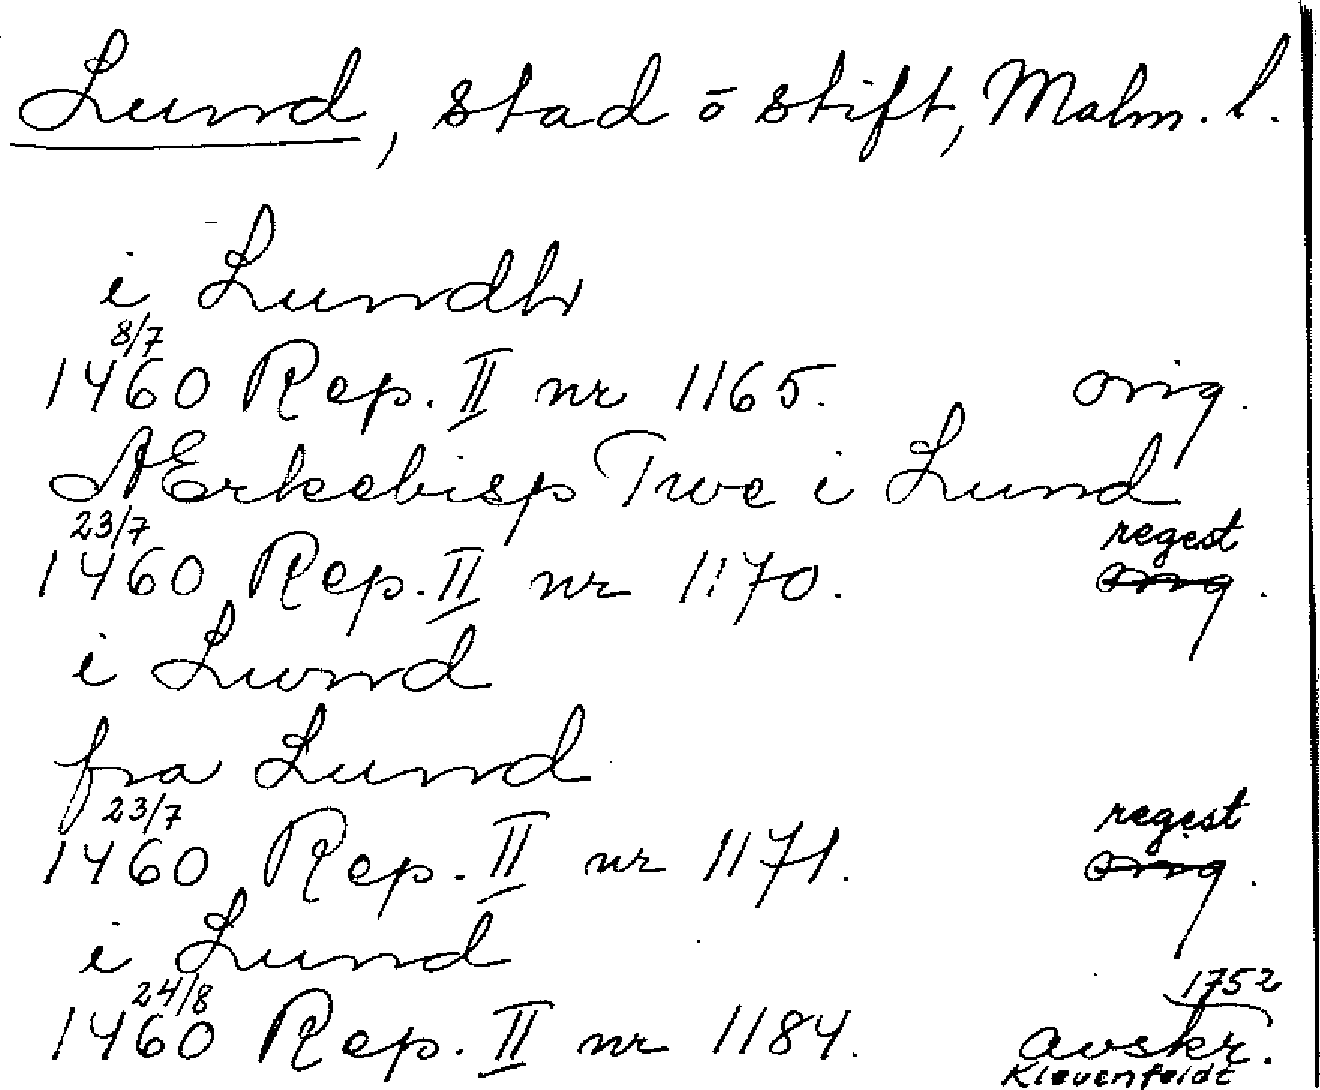 Lund, stad o stift, Malm. l.
i Lundh
8/7
1460 Rep. II nr 1165. orig.
Ærkebisp Twe i Lund
23/7 regest
1460 Rep. II nr 1170. orig.
i Lund
fra Lund
23/7 regest
1460 Rep. II nr 1171. orig.
i Lund
24/8 1752
1460 Rep. II nr 1184. avskr.
Klevenfeldt